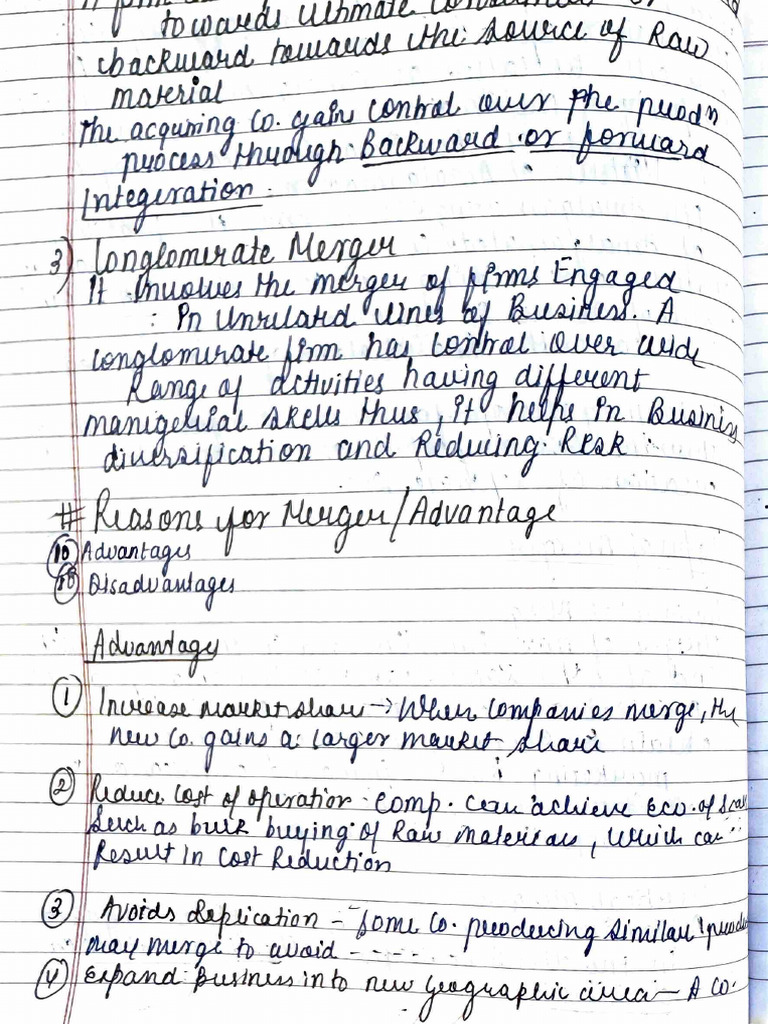 towards ultimate
backward towards the source of Raw
material
The acquring Co. gain control over the prodn
process through Backward or forward
Integration.
3) Conglomerate Merger
It involves the merger of firms Engaged
in unrelated lines of Business. A
conglomerate firm has control over wide
Range of activities having different
managerial skills thus, it helps in Business
diversification and Reducing Risk.
# Reasons for Merger/Advantage
10 Advantages
Disadvantages
Advantage
1 Increase market share → When Companies merge, the
new Co. gains a larger market share
2 Reduce Cost of operation - Comp. can achieve Eco. of Scale
such as bulk buying of Raw materials, which can
Result in Cost Reduction
3 Avoids Replication - Some Co. producing similar
may merge to avoid - - - - -
4 Expand Business into new geographic area - A Co.